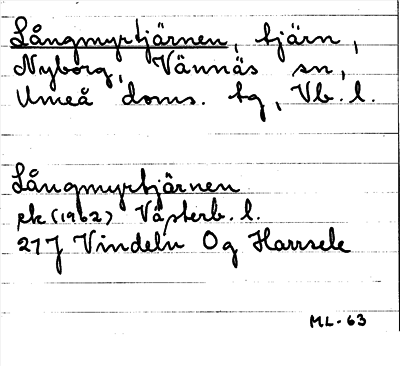 Långmyrtjärnen, tjärn,
Nyborg, Vännäs sn,
Umeå doms. tg, Vb. l.
Långmyrtjärnen
ek (1962) Västerb. l.
21J Vindeln Og Harrsele
ML-63